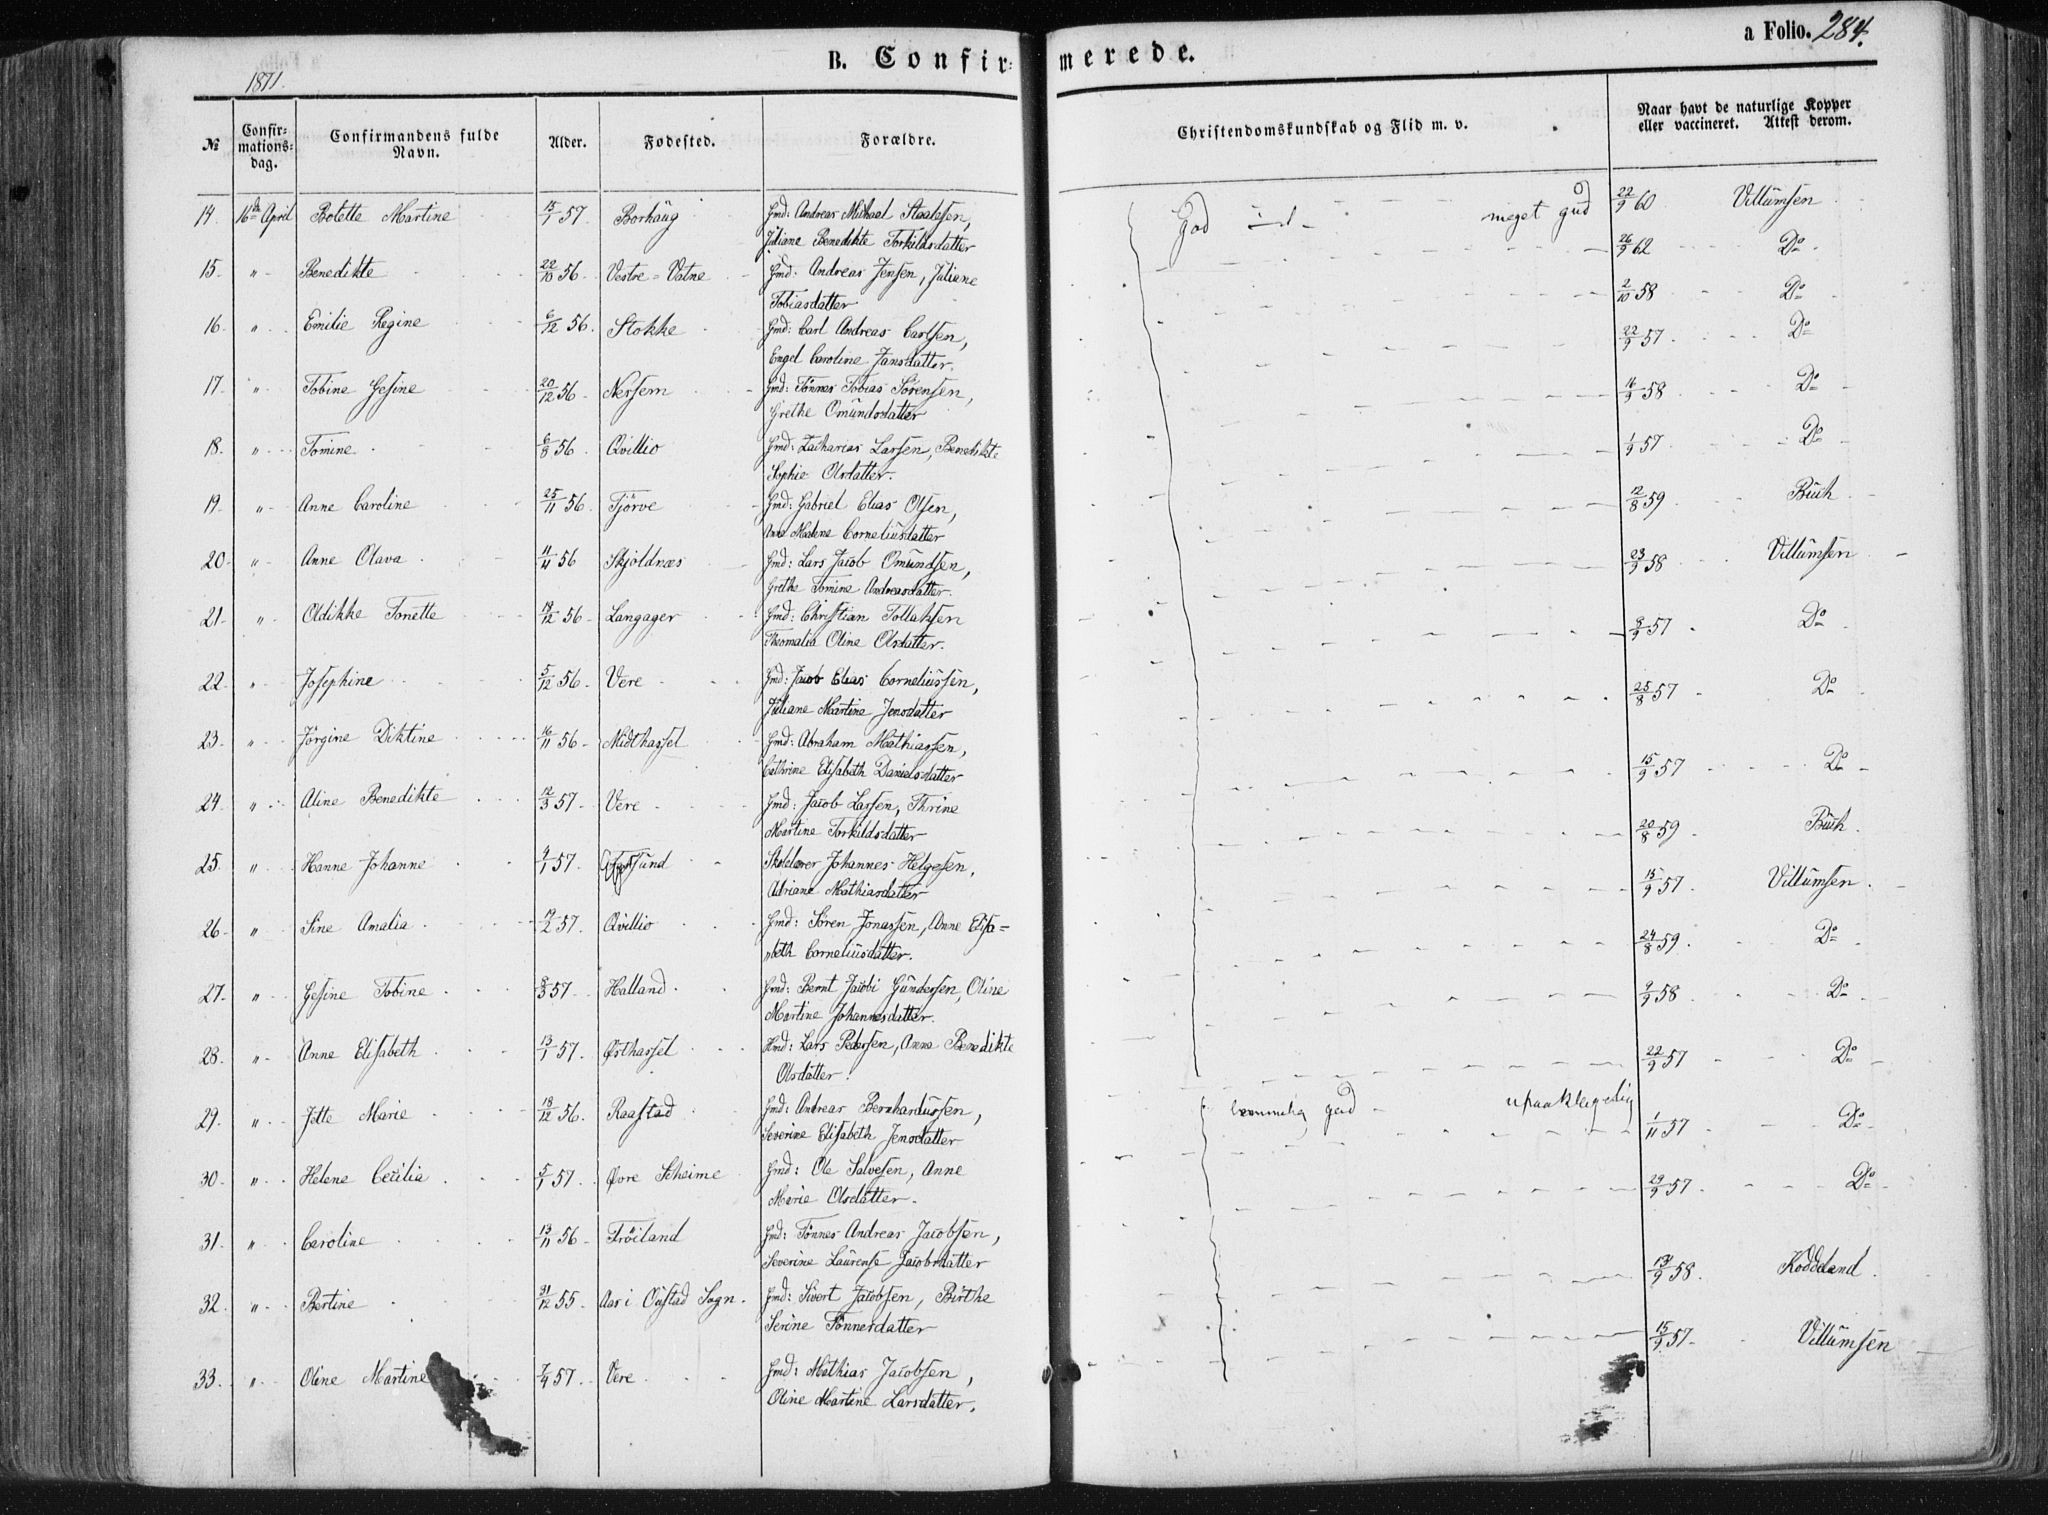 1871.
B. Confir-
merede.
a Folio. 284.
№
Confir-
mations-
dag.
Confirmandens fulde
Navn.
Alder.
Fødested.
Forældre.
Christendomskundskab og Flid m. v.
Naar havt de naturlige Kopper
eller vaccineret. Attest derom.
14 16de April Botette Martine 15/1 57. Borhaug Gmd: Andreas Michael Staalesen,
Juliane Benedikte Torkildsdatter
God meget god 22/9 60 Villumsen
15. " Benedikte 22/10 56. Vestre=Vatne Gmd: Andreas Jensen, Juliane
Tobiasdatter
26/9 62 Do
16. " Emilie Regine 6/12 56. Stokke Gmd: Carl Andreas Carlsen,
Engel Caroline Jansdatter.
2/10 58 Do
17. " Tobine Gesine 20/12 56 Nersem Gmd: Tönnes Tobias Sörensen,
Grethe Omundsdatter
22/9 57 Do
18. " Tomine 6/8 56. Qvillio Gmd: Zacharias Larsen, Benedikte
Sophie Olsdatter.
16/9 58 Do
19. " Anne Caroline 25/11 56. Tjörve Gmd: Gabriel Elias Olsen,
Anne Malene Corneliusdatter
1/9 57 Do
20. " Anne Olava 11/4 56 Skjoldnæs Gmd: Lars Jacob Omundsen,
Grethe Tomine Andreasdatter.
12/8 59 Buch
21. " Oldikke Tonette 19/12 56. Langager Gmd: Christian Tollaksen
Thomalia Oline Olsdatter.
23/9 58 Villumsen
22. " Josephine 5/12 56. Vere Gmd: Jacob Elias Corneliussen,
Juliane Martine Jensdatter
9/9 57 Do
23. " Jörgine Diktine 16/11 56 Midthassel Gmd: Abraham Mathiassen,
Cathrine Elisabeth Danielsdatter
25/8 57 Do
24. " Aline Benedikte 12/3 57. Vere Gmd: Jacob Larsen, Thrine
Martine Torkildsdatter
15/9 57 Do
25. " Hanne Johanne 4/1 57. Skolelærer Johannes Helgesen,
Adriane Mathiasdatter
20/8 59 Buch.
26 " Sine Amalia 19/2 57. Qvillio Gmd: Sören Jonassen, Anne Elisa-
beth Corneliusdatter.
15/9 57. Villumsen.
27. " Gesine Tobine 8/3 57. Halland Gmd: Bernt Jacobi Gundersen, Oline
Martine Johannesdatter.
24/8 59. Do
28. " Anne Elisabeth 13/1 57. Østhassel Gmd: Lars Pedersen, Anna Benedikte
Olsdatter.
9/9 58 Do
29. " Jette Marie 18/12 56. Raastad Gmd: Andreas Bernhardussen,
Severine Elisabeth Jensdatter
temmelig god upaaklagelig 22/9 57 Do
30. " Helene Cecilia 5/1 57. Øvre Scheime Gmd: Ole Salvesen, Anne
Marie Olsdatter.
1/11 57 Do
31. " Caroline 13/11 56. Tröiland Gmd: Tönnes Andreas Jacobsen,
Severine Laurense Jacobsdatter
29/9 57. Do
32. " Bertine 31/12 55. Aas i Sogn. Gmd: Sivert Jacobsen, Birthe
Serine Tönnesdatter
13/9 58. Koddeland.
33. " Oline Martine 7/4 57. Vere Gmd: Mathias Jacobsen,
Oline Martine Larsdatter.
15/9 57. Villumsen